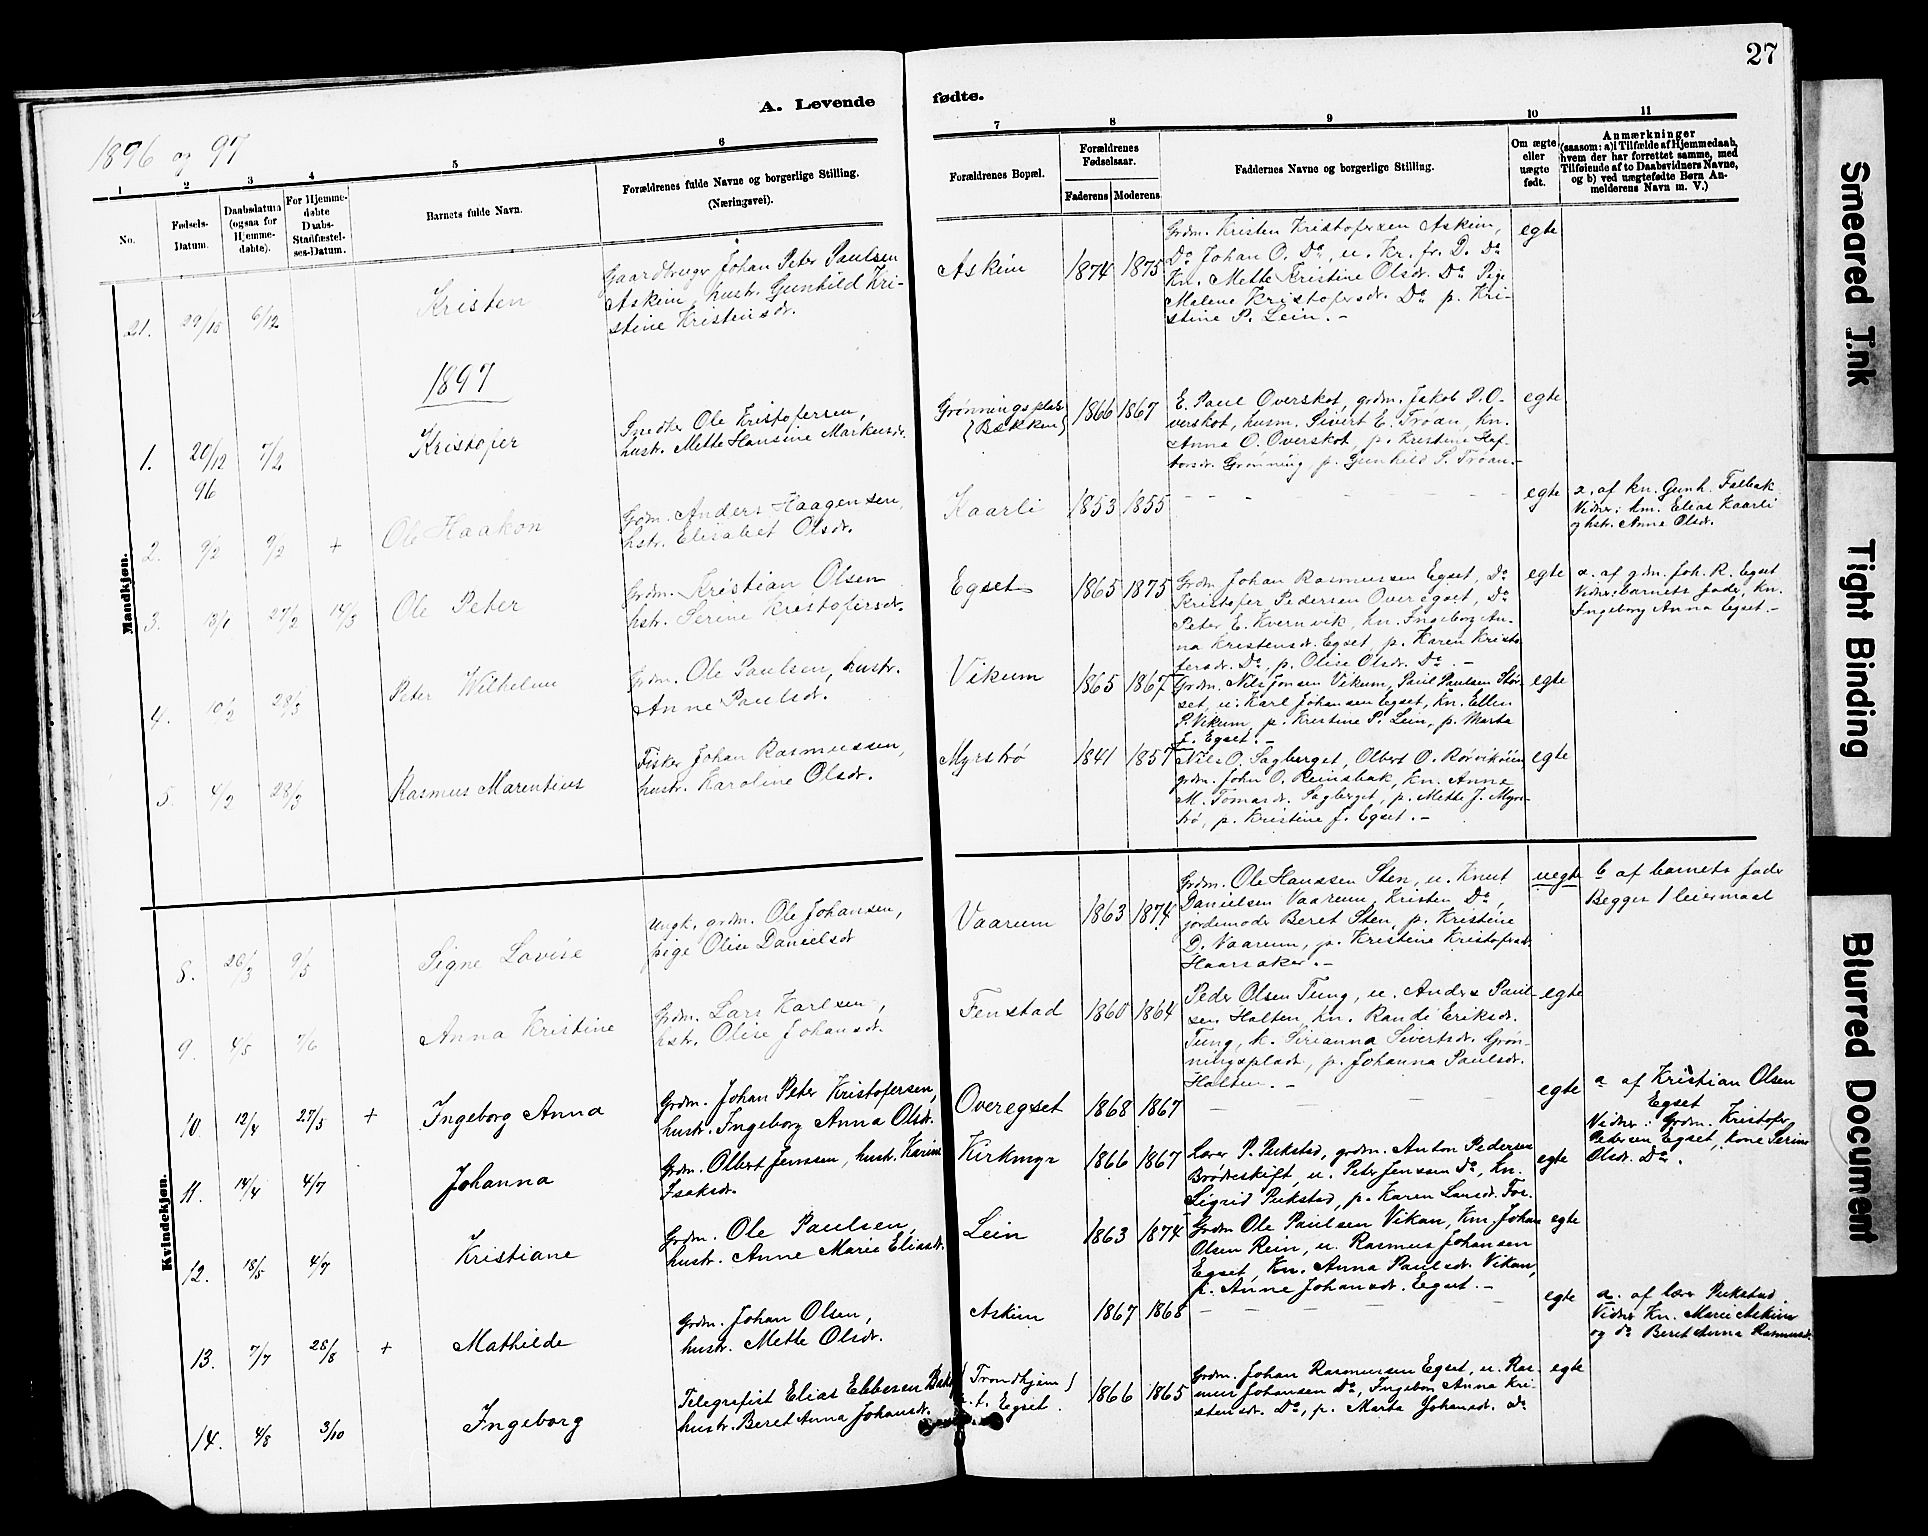 27
A. Levende
fødte.
1896 og 97
1
2
3
4
5
6
7
8
9
10
11
No.
Fødsels-
Datum.
Daabsdatum
(ogsaa for
Hjemme-
døbte).
For Hjemme-
døbte
Daabs-
Stadfæstel-
ses-Datum.
Barnets fulde Navn.
Forældrenes fulde Navne og borgerlige Stilling.
(Næringsvei).
Forældrenes Bopæl.
Forældrenes
Fødselsaar.
Faderens
Moderens
Faddernes Navne og borgerlige Stilling.
Om ægte
eller
uægte
født.
Anmærkninger
(saasom: a) i Tilfælde af Hjemmedaab,
hvem der har forrettet samme, med
Tilføiende af to Daabsvidners Navne,
og b) ved uægtefødte Børn An-
melderens Navn m. V.)
Mandkjøn.
21. 29/10 6/12
Kristen
Gaardbruger Johan Peter Paulsen
Askim, hustr. Gunhild Kri-
stine Kristensdr.
Askim 1874 1875
Grdm. Kristen Kristofersen Askim,
Do Johan O. Do, u. Kr. fr. D. Do
Kn. Mette Kristine Olsdr. Do Pige
Malene Kristofersdr. Do p. Kri-
stine P. Lein. -
egte
1897
1. 20/12 96 7/2
Kristofer
Inedtr Ole Kristofersen,
hustr. Mette Hansine Markusdr.
Grønningsplads
(Bakken)
1866 1867
E. Paul Overskot, grdm. Jakob P. O-
verskot, husm. Sivert E. Trøan, kn.
Anna O. Overskot, p. Kristine Haf-
torsdr. Grønning p. Gunhild S. Trøan. -
egte
2. 9/2 9/2 +
Ole Haakon
Grdm. Anders Haagensen,
hstr. Elisabet Olsdr.
Kaarli 1853 1855
egte
a. af kn. Gunh. Falbak
Vidner: hm. Elias Kaarli
og hstr. Anna Olsdr.
3. 13/1 27/2 14/3
Ole Peter
Grdm. Kristian Olsen
hstr. Serine Kristofersdr.
Egset 1865 1875
Grdm. Johan Rasmussen Egset, Do
Kristofer Pedersen Overegset, Do
Peter E. Kvernvik, kn. Ingeborg An-
na Kristensdr. Egset, p. Karen Kristo-
fersdr. Do, p. Olise Olsdr. Do. -
egte
a. af gdm. Joh. R. Egset
Vidner: barnets fader, kn.
Ingeborg Anna Egset. -
4. 10/2 28/3
Peter Wilhelm
Grdm. Ole Paulsen, hustr.
Anne Paulsdr.
Vikum 1865 1867
Grdm. Nils Jonsen Vikum, Paul Paulsen Stør-
set, u. Karl Johansen Egset, Kn. Ellen
P. Vikum, p. Kristine P. Lein, p. Marta
J. Egset. -
egte
5. 4/2 28/3
Rasmus Marentius
Fisker Johan Rasmussen,
hustr. Karoline Olsdr.
Myrstrø 1841 1857
Nils O. Sagberget, Olbert O. Rørvikøien
grdm. John O. Reinsbak, Kn. Anne
M. Tomasdr. Sagberget, p. Mette J. Myr-
strø, p. Kristine J. Egset. -
egte
Kvindekjøn.
8. 26/3 9/5
Signe Lovise
Ungk. grdm. Ole Johansen,
pige Olise Danielsdr
Vaarum 1863 1874
Grdm. Ole Hanssen Sten, u. Knut
Danielsen Vaarum, Kristen Do,
jordemoder Beret Sten, p. Kristine
D. Vaarum, p. Kristine Kristofersdr.
Haarsaker. -
uegte
b af barnets fader
Begges 1 leiermaal
9. 4/5 7/6
Anna Kristine
Grdm. Lars Karlsen,
hstr. Olise Johansdr.
Fenstad 1860 1864
Peder Olsen Tung, u. Anders Paul-
sen Halten, kn. Randi Eriksdr.
Tung, k. Sirianna Sivertsdr. Grøn-
ningsplads, p. Johanna Paulsdr.
Halten. -
egte
10. 12/4 27/5 +
Ingeborg Anna
Grdm. Johan Peter Kristofersen,
hustr. Ingeborg Anna Olsdr.
Overegset 1868 1867
egte
a af Kristian Olsen
Egset
Vidner: Grdm. Kristofer
Pedersen Egset, kone Serine
Olsdr. Do.
11. 14/4 4/7
Johanna
Grdm. Olbert Jenssen, hustr. Karine
Isaksdr.
Kirkmyr 1866 1867
Lærer P. Pukstad, grdm. Anton Pedersen
Brødreskift, u. Peter Jenssen Do, Kn.
Sigrid Pukstad, p. Karen Larsdr. Fos.
egte
12. 18/5 4/7
Kristiane
Grdm. Ole Paulsen,
hustr. Anne Marie Eliasdr.
Lein 1863 1874
Grdm Ole Paulsen Vikan, Km. Johan
Olsen Rein, u. Rasmus Johansen
Egset, Kn. Anna Paulsdr. Vikan,
p. Anne Johansdr. Egset. -
egte
13. 7/7 28/8 +
Mathilde
Grdm. Johan Olsen,
hustr. Mette Olsdr.
Askim 1867 1868
egte
a. af lærer Pukstad.
Vidner Kn. Marie Askim
og do Beret Anna Rasmusdr.
14. 4/8 3/10
Ingeborg
Telegrafist Elias Ebbesen Bak
hustr. Beret Anna Johansdr.
(Trondhjem)
p. t. Egset.
1866 1865
Grdm. Johan Rasmussen Egset, u. Ras-
mus Johansen Do, Ingebor Anna Kri-
stensdr. Do, p. Marta Johansdr. do
egte
Smeared Ink
Tight Binding
Blurred Document